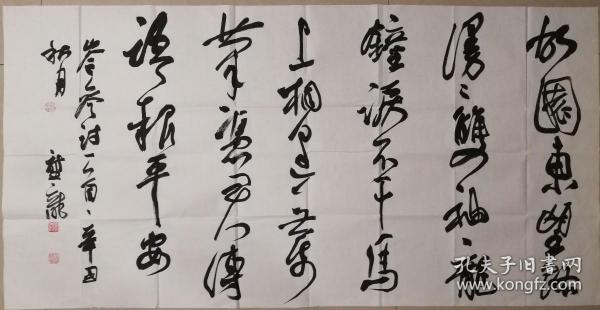 故園東望路
漫〻雙袖龍
鐘淚不干馬
上相逢無紙
筆憑君傳
語報平安
岑參詩一首
秋月
孔夫子旧书网
www.kongfz.com